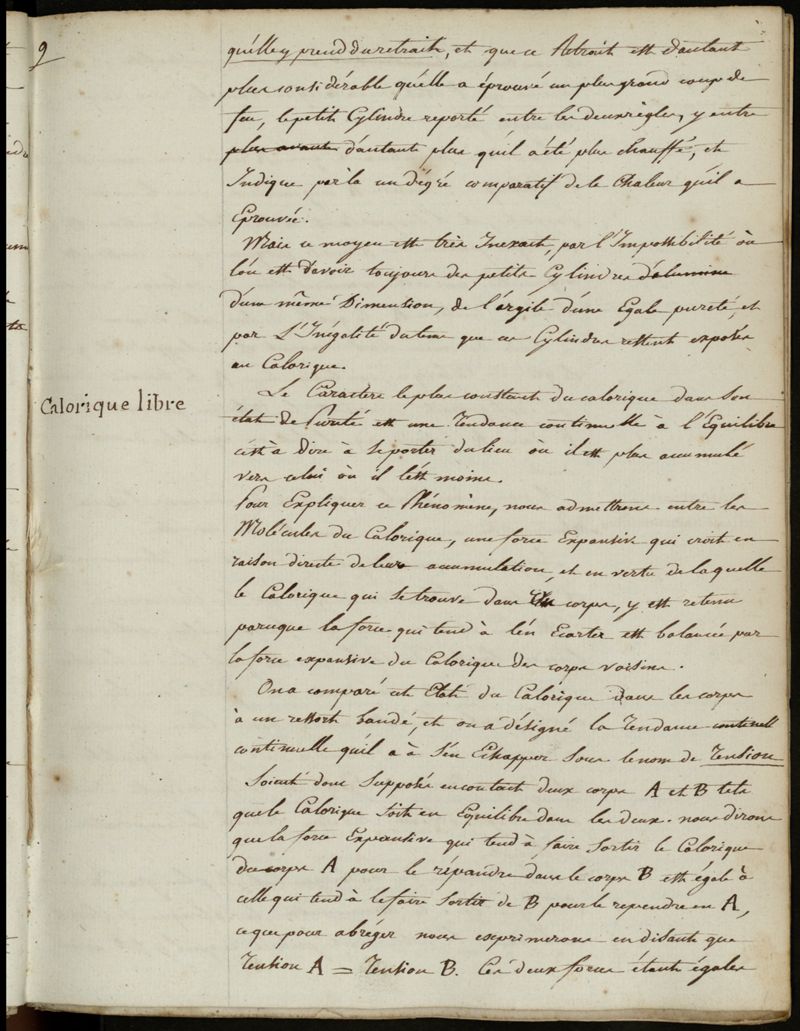 9
qu'elle y prend du retrait, et que ce Retrait est d'autant
plus considérable qu'elle a éprouvé un plus grand coup de
feu, le petit Cylindre reporté entre les deux règles, y entre
plus avant d'autant plus qu'il a été plus chauffé, et
Indique par là un dégré comparatif de la Chaleur qu'il a
Eprouvée.
Mais ce moyen est très Inexact, par l'Impossibilité où
l'on est d'avoir toujours des petits Cylindres d'alumine
d'une même Dimention, de l'argile d'une Egale pureté, et
par L'Inégalité du tems que ces Cylindres restent exposés
au Calorique.
Calorique libre
Le Caractère le plus constant du calorique dans son
état de Pureté est une Tendance continuelle à l'Equilibre
c'est à dire à se porter du lieu où il est plus accumulé
vers celui où il l'est moins.
Pour Expliquer ce Phénomène, nous admettrons entre les
Molécules du Calorique, une force Expansive qui croit en
raison directe de leur accumulation, et en vertu de laquelle
le Calorique qui se trouve dans Un corps, y est retenu
parceque la force qui tend à l'en Ecarter est balancée par
la force expansive du Calorique des corps voisins.
On a comparé cet Etat du Calorique dans les corps
à un ressort bandé, et on a désigné la Tendance continuell
continuelle qu'il a à s'en Echapper sous le nom de Tension
Soient donc supposés en contact deux corps A et B tels
que le Calorique soit en Equilibre dans les deux. nous dirons
que la force Expansive qui tend à faire sortir le Calorique
du corps A pour le répandre dans le corps B est égale à
celle qui tend à le faire sortir de B pour le reprendre en A,
ce que pour abréger nous exprimerons en disant que
Tension A = Tension B. Ces deux forces étant égales